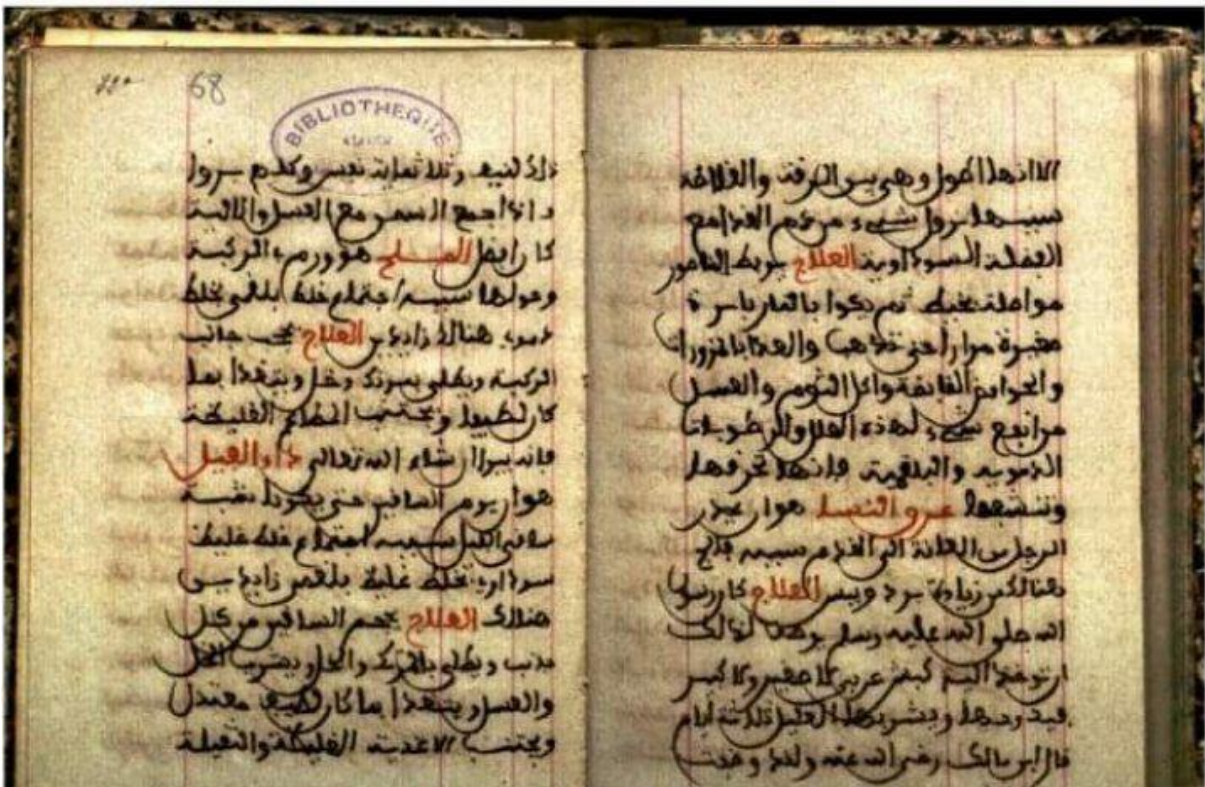 الا انها اطول وهي بين الرقة والغلاظة
سببها نزول شيء من دم الغذا مع
الفضلة السوداوية العلاج يربط الناصور
بخيط ثم يكوا بالنار باسرة
صغيرة مرارا حتى تذهب والغذا بالمزورات
والحوامض واكل الثوم والعسل
من انفع شيء لهذه العلل والرطوبات
الدموية والبلغمية فانها تحرقها
وتنشفها عرق النسا هو ان يمدر
الرجل من العانة الى القدم سببه
هنالك من زيادة برد ويبس العلاج كان رسول
الله صلى الله عليه وسلم لذالك
ان توخذ الية كبش عربي لا صغير ولا كبير
ويشربها العليل ثلاثة ايام
قال ابن مالك رضي الله عنه ولقد وصفت
68
BIBLIOTHEQUE
ذالك لنيف وثلاثماية نفس وكلهم
واذا جمع السمن مع العسل والالية
كان افضل هو ورم في الركبة
وحولها سببه اجتماع خلط بلغمي بخلط
دموي هنالك زايدين العلاج يحجم جانب
الركبة ويطلى بمرتك وخل ويتغذا بما
كان لطيفا ويجتنب المطاعم الغليظة
فانه يبرا ان شاء الله تعالى داء الفيل
هو ان يورم الساقين حتى يكونا شبه
ساقي الفيل سببه اجتماع خلط غليظ
سوداوي بخلط غليظ بلغمي زايدين
هنالك العلاج يحجم الساقين من كل
جنب ويطلى بالمرتك والخل ويشرب الخل
والعسل ويتغذا بما كان لطيفا معتدل
ويجتنب الاغذية الغليظة والثقيلة